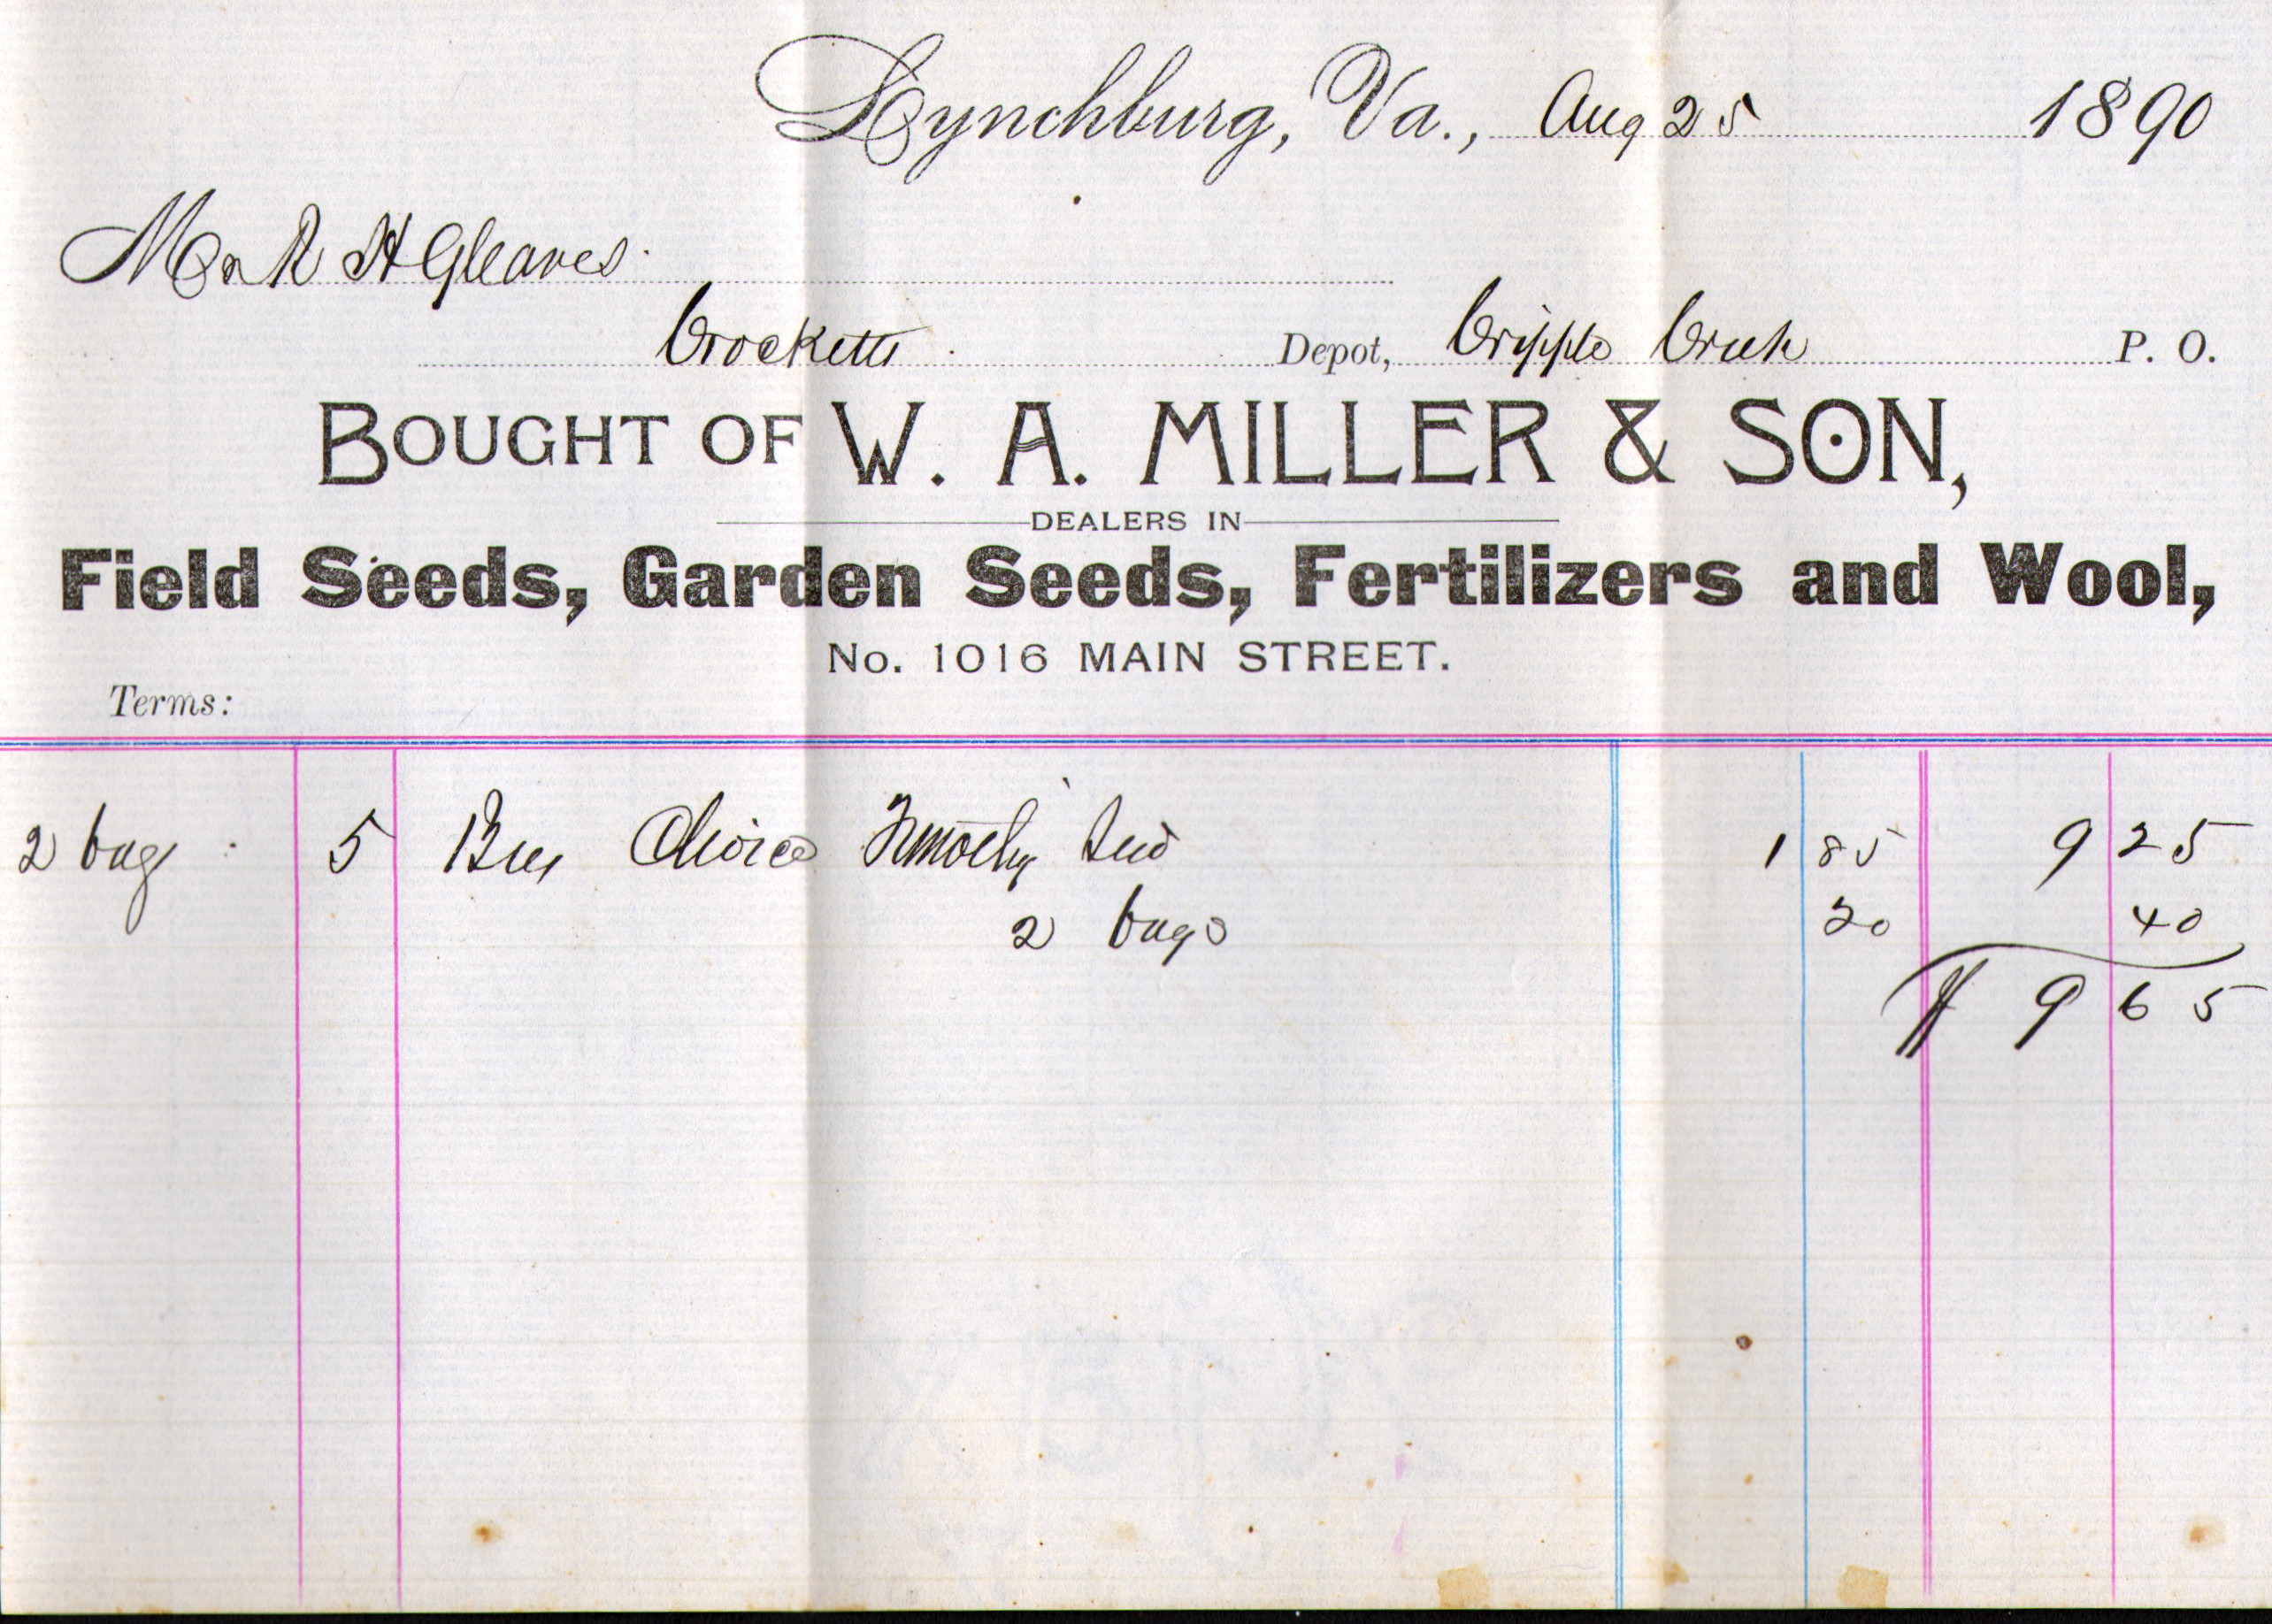 Lynchburg, Va., Aug 25 1890
Mr R H Gleaves.
Crocketts Depot, Cripple Creek P. O.
BOUGHT OF W. A. MILLER & SON,
DEALERS IN
Field Seeds, Garden Seeds, Fertilizers and Wool,
No. 1016 MAIN STREET.
Terms:
2 bags 5 Bus Choice Timothy Seed 1 85 9 25
2 bags 20 40
$ 9 65